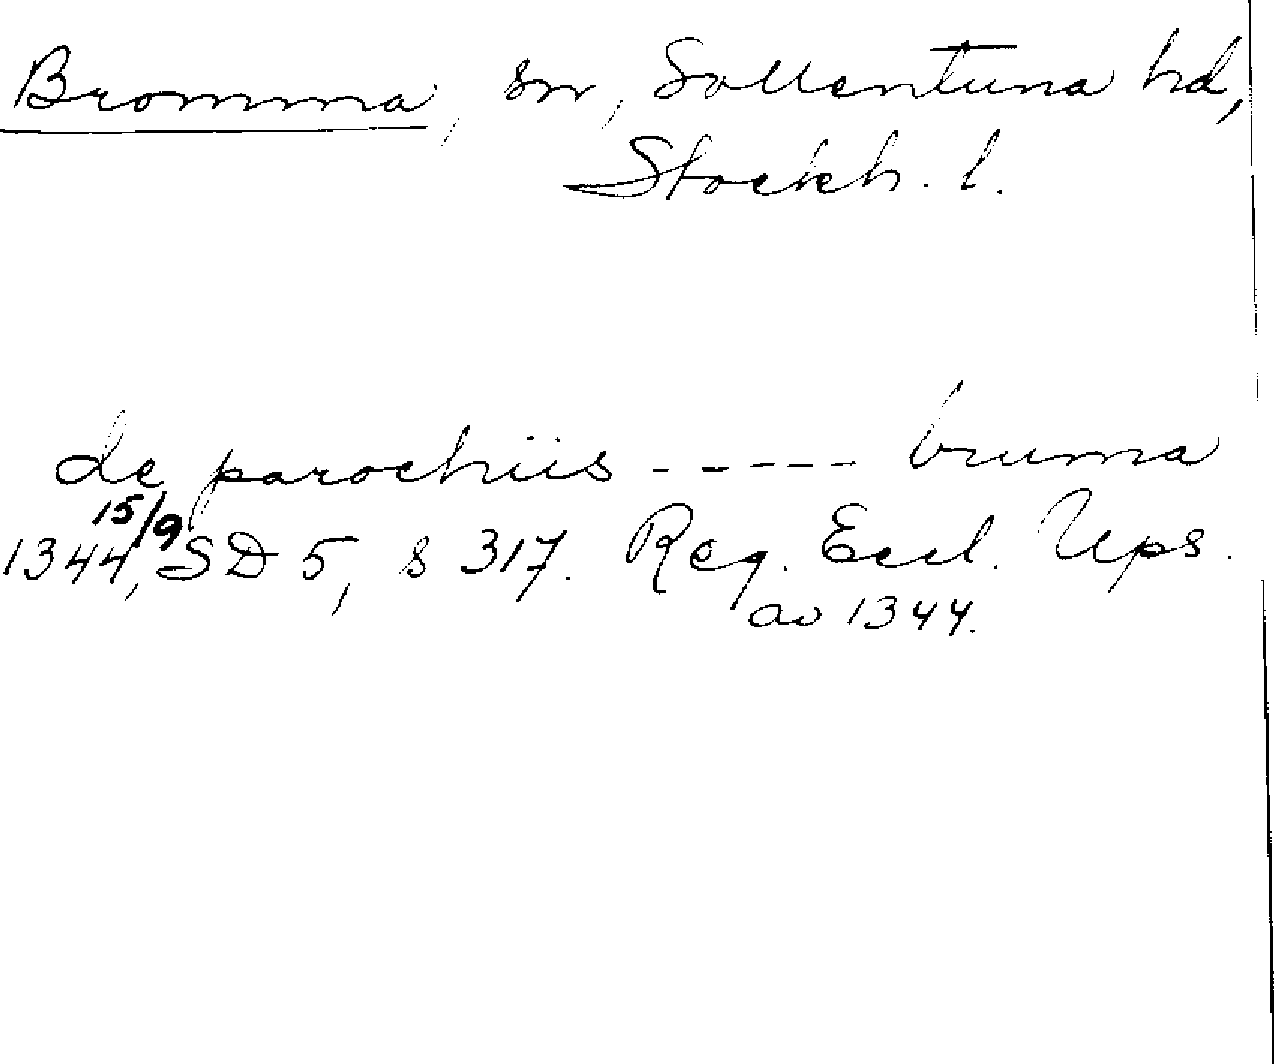 Bromma, sn, Sollentuna hd,
Stockh. l.
de parochiis ----- bruma
15/9
1344, SD 5, s 317. Reg. Eccl. Ups.
av 1344.